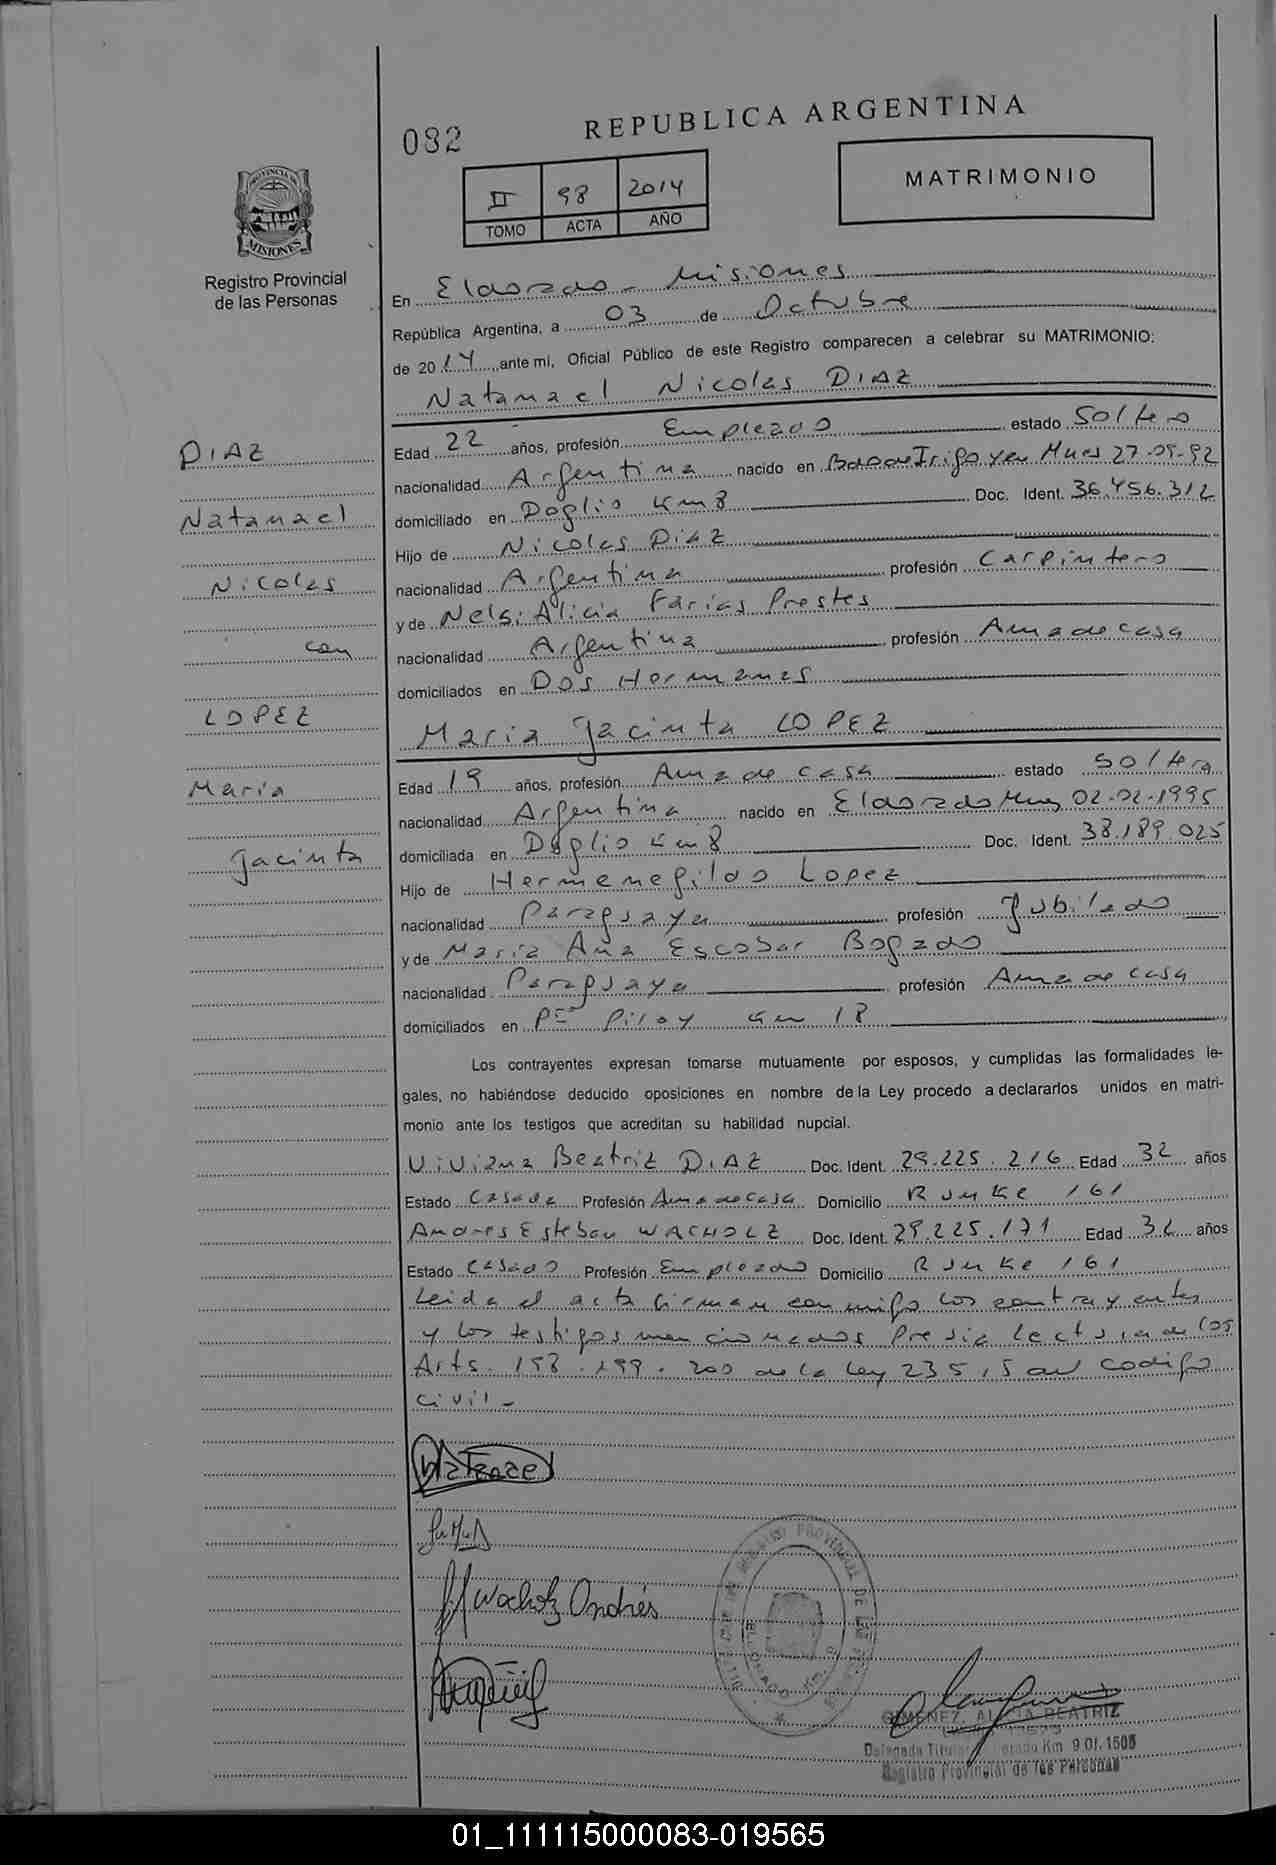 082
REPUBLICA ARGENTINA
II 98 2014
TOMO ACTA AÑO
MATRIMONIO
PROVINCIA DE
MISIONES
Registro Provincial
de las Personas
En Eldorado - Misiones
República Argentina, a 03 de Octubre
de 2014 ante mi, Oficial Público de este Registro comparecen a celebrar su MATRIMONIO:
Natanael Nicolas DIAZ
DIAZ
Natanael
Nicolas
con
LOPEZ
Maria
Jacinta
Edad 22 años, profesión Empleado estado Soltero
nacionalidad Argentina nacido en Irigoyen Mnes 27-05-92
domiciliado en Doglio Km 8 Doc. Ident. 36.456.312
Hijo de Nicolas Diaz
nacionalidad Argentina profesión Carpintero
y de Nelsi Alicia Farias Prestes
nacionalidad Argentina profesión Ama de casa
domiciliados en Dos Hermanas
Maria Jacinta LOPEZ
Edad 19 años, profesión Ama de casa estado Soltera
nacionalidad Argentina nacido en Eldorado Mnes 02-02-1995
domiciliada en Doglio Km 8 Doc. Ident. 38.189.025
Hijo de Hermenegildo Lopez
nacionalidad Paraguaya profesión Jubilado
y de Maria Ana Escobar Bogado
nacionalidad Paraguaya profesión Ama de casa
domiciliados en Piray Km 18
Los contrayentes expresan tomarse mutuamente por esposos, y cumplidas las formalidades le-
gales, no habiéndose deducido oposiciones en nombre de la Ley procedo a declararlos unidos en matri-
monio ante los testigos que acreditan su habilidad nupcial.
Viviana Beatriz DIAZ Doc. Ident. 29.225.216 Edad 32 años
Estado Casada Profesión Ama de casa Domicilio R Junke 161
Andres Esteban WACHOLZ Doc. Ident. 29.225.171 Edad 32 años
Estado Casado Profesión Empleado Domicilio R Junke 161
Leida el acta firman conmigo los contrayentes
y los testigos mencionados Previa lectura de los
Arts. 198.199.200 de la Ley 23515 del codigo
civil -
Natanael
Wacholz Andrés
GIMENEZ, ALICIA BEATRIZ
Delegada Titular Eldorado Km 9 Of. 1505
Registro Provincial de las Personas
01_111115000083-019565